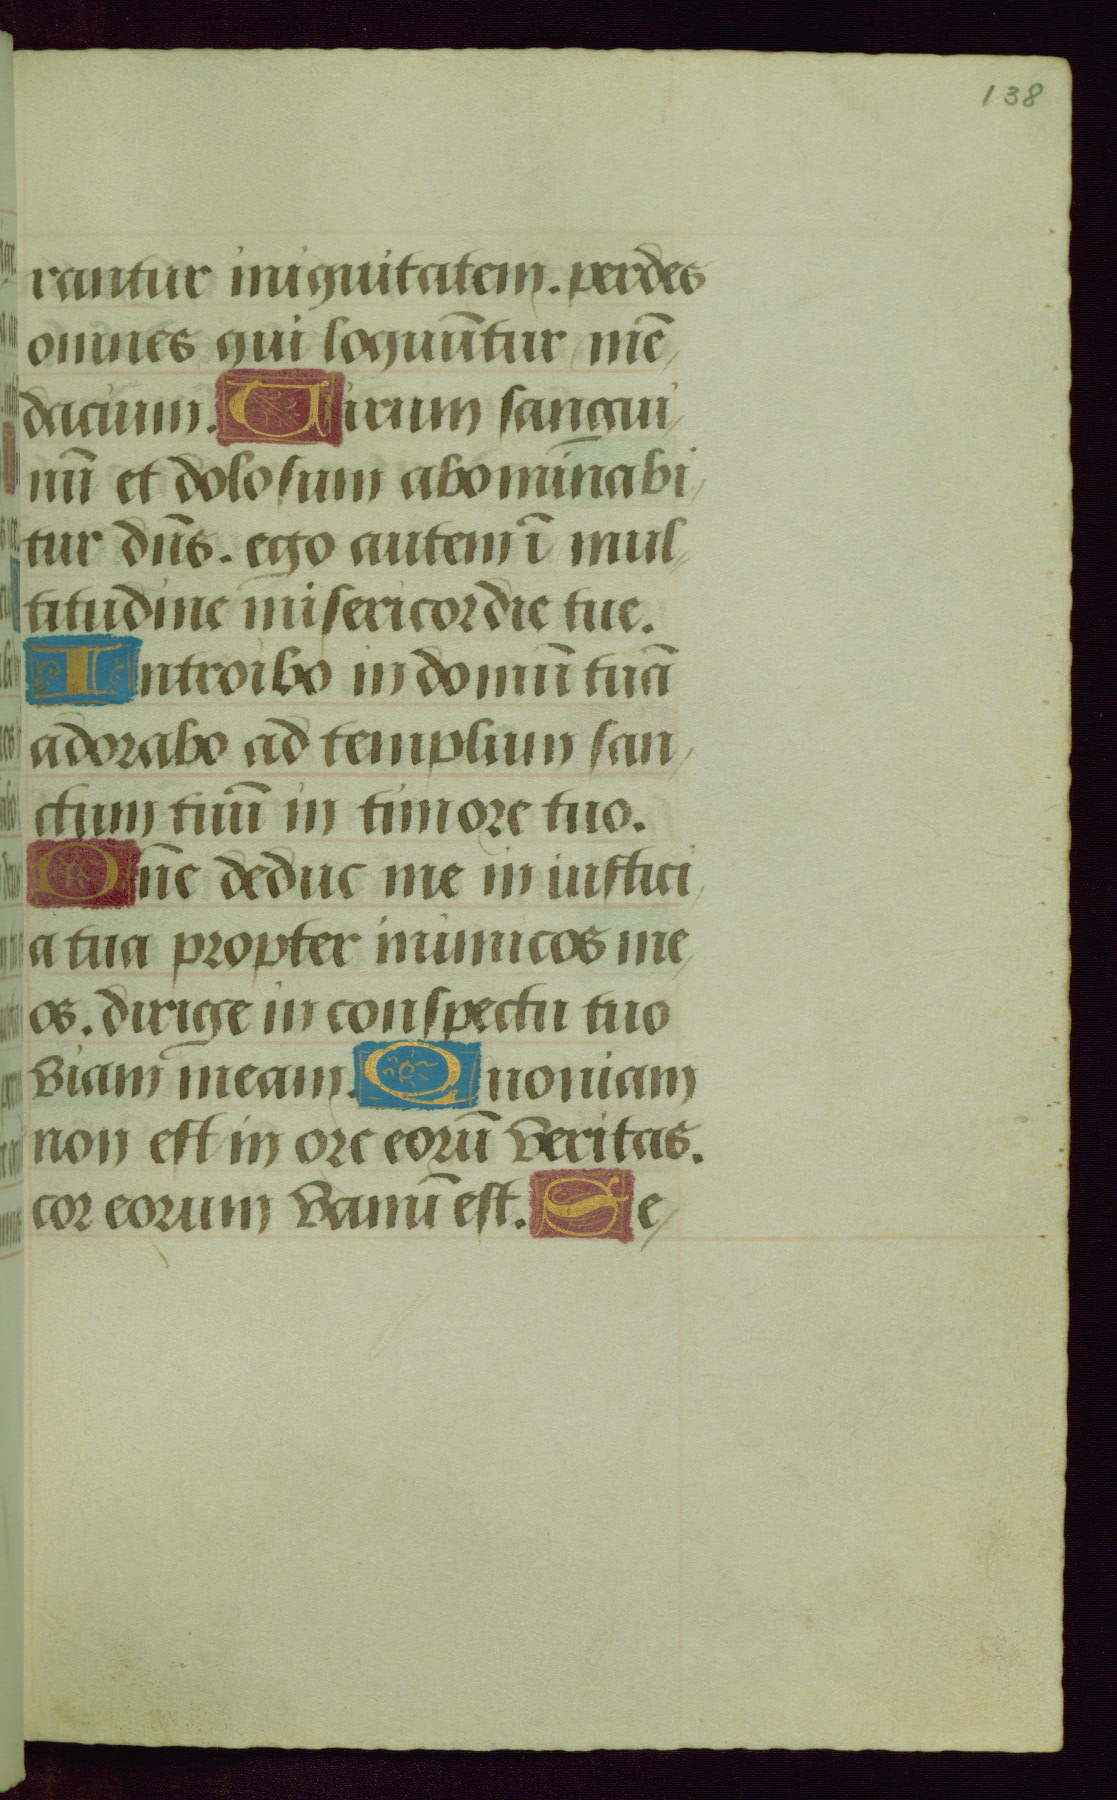 138
rantur iniquitatem. perdes
omnes qui loquūntur mē
dacium. Uirum sangui
nū et dolosum abominabi
tur dn̄s. ego autem ī mul
titudine misericordie tue.
Introibo in domū tuā
adorabo ad templum san
ctum tuū in timore tuo.
Dn̄e deduc me in iustici
a tua propter inimicos me
os. dirige in conspectu tuo
viam meam. Quoniam
non est in ore eorū veritas.
cor eorum vanū est. Se